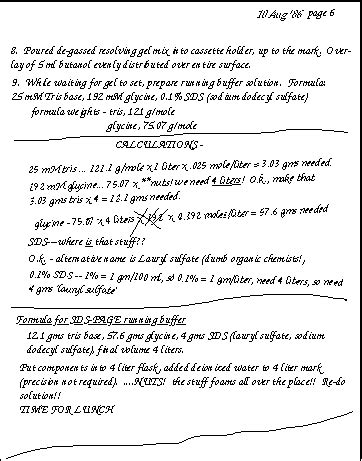 10 Aug '86 page 6
8. Poured de-gassed resolving gel mix into cassette holder, up to the mark. Over-
lay of 5 ml butanol evenly distributed over entire surface.
9. While waiting for gel to set, prepare running buffer solution. Formula:
25 mM Tris base, 192 mM glycine, 0.1% SDS (sodium dodecyl sulfate)
formula weights - tris, 121 g/mole
glycine, 75.07 g/mole
CALCULATIONS -
25 mM tris ... 121.1 g/mole x 1 liter x .025 mole/liter = 3.03 gms needed.
192 mM glycine... 75.07 x **nuts! we need 4 liters! O.k., make that
3.03 gms tris x 4 = 12.1 gms needed.
glycine - 75.07 x 4 liters x 192 x 0.192 moles/liter = 57.6 gms needed
SDS---where is that stuff??
O.k. - alternative name is Lauryl sulfate (dumb organic chemists!,
0.1% SDS -- 1% = 1 gm/100 ml, so 0.1% = 1 gm/liter, need 4 liters, so need
4 gms 'lauryl sulfate'
Formula for SDS-PAGE running buffer
12.1 gms tris base, 57.6 gms glycine, 4 gms SDS (lauryl sulfate, sodium
dodecyl sulfate), final volume 4 liters.
Put components into 4 liter flask, added deionized water to 4 liter mark
(precision not required). ....NUTS! the stuff foams all over the place!! Re-do
solution!!
TIME FOR LUNCH